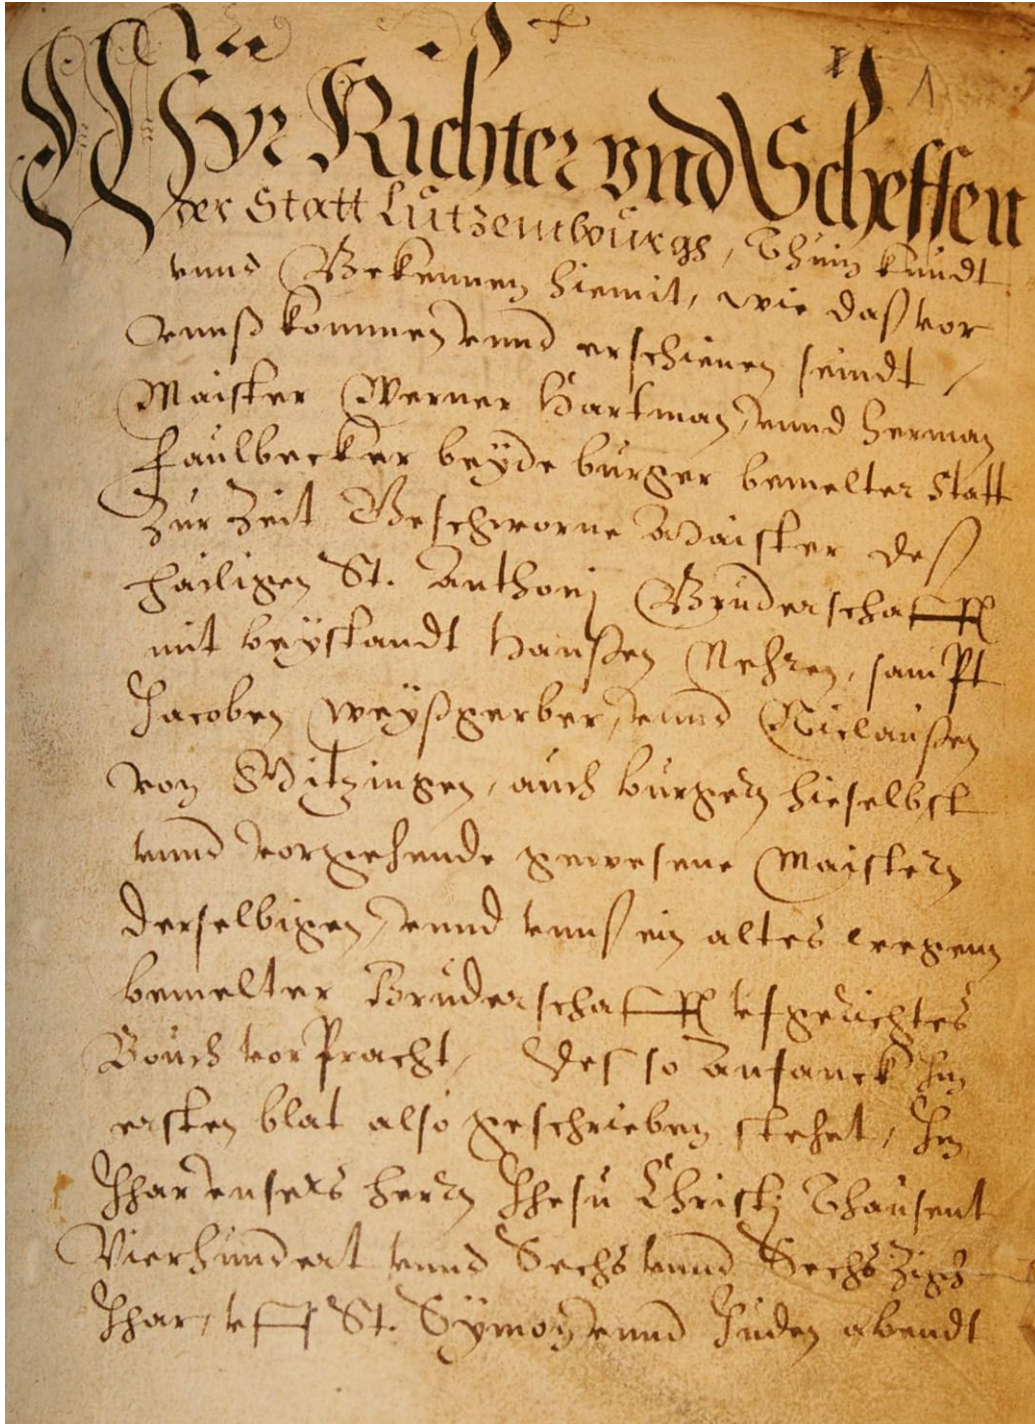 1
Wyr Richter vnd Scheffen
der Statt Lützemburgh, Thuin kundt
vnnd Bekennen hiemit, wie daß vor
vnnß kommen vnnd erschienen seindt,
Maister Werner Hartman, vnnd Herman
Faulbecker beÿde burger bemelter Statt
Zur Zeit Geschworne Maister deß
hailigen St. Anthonij Bruderschafft
mit beÿstandt Hanßen Nehren, sampt
Jacoben Weyßgerber, vnnd Niclaußen
von Mitzingen, auch burgern hieselbst
vnnd vorgehende gewesene Maistern
derselbigen, vnnd vnnß ein altes wegenn
bemelter Bruderschafft vfgerichtes
Bouch vorpracht, des so Anfanck Im
ersten blat also geschrieben stehet, Im
Jhar vnsers hern Jhesu Christj Thausent
Vierhundert vnnd Sechs vnnd Sechszigh
Jhar, vff St. Sÿmon vnnd Juden abendt